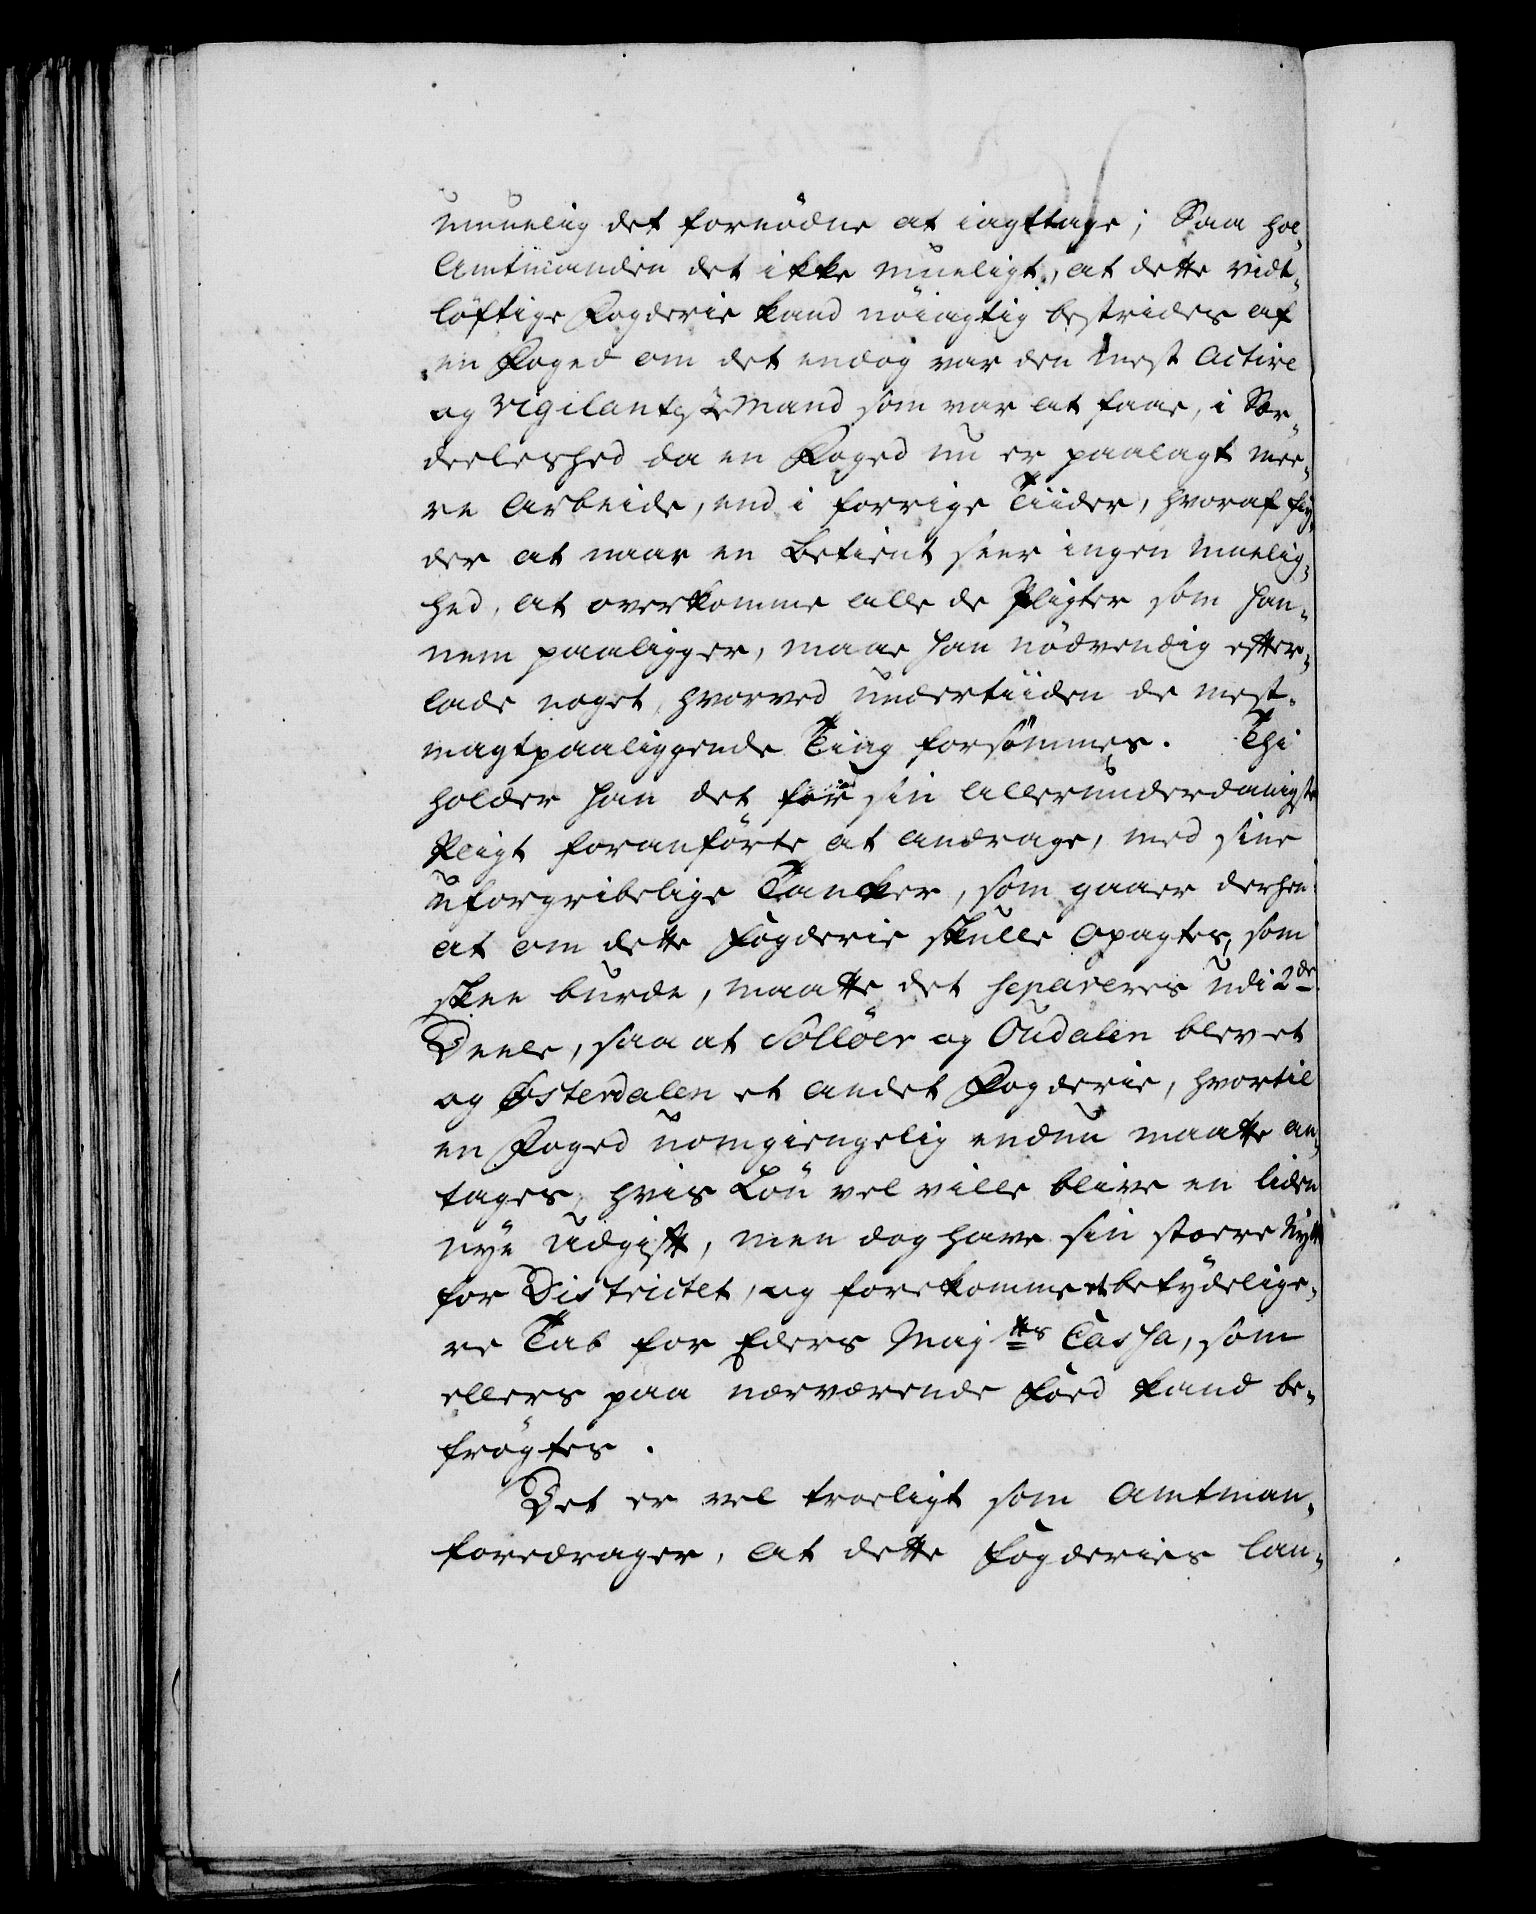 umuelig det fornödne at iagttage; Saa hol„
Amtmanden det ikke mueligt, at dette vidt„
löftige Fogderie kand nöiagtig bestrides af
en Foged om det endog var den mest active
og vigilanteste Mand som var at faae, i Sær„
deeleshed da en Foged nu er paalagt mee„
re Arbeide, end i forrige Tiider, hvoraf fly„
der at naar en Betient seer ingen Muelig„
hed, at overkomme alle de Pligter som han„
nem paaligger, maae han nödvendig efter„
lade noget, hvorved undertiiden de mest„
magtpaaliggende Ting forsömmes. Thi
holder han det for sin allerunderdanigste
Pligt foranförte at andrage, med sine
uforgribelige Tancker, som gaaer derhen
at om dette Fogderie skulle opagtes, som
skee burde, maatte det separeres udi 2de
Deele, saa at Sollöer og Oudalen blev et
og Østerdalen et andet Fogderie, hvortil
en Foged uomgiengelig endnu maatte an„
tages, hvis Lön vel ville blive en liden
nye Udgift, men dog have sin stoere Nytte
for Districtet, og forekomme et betydelige„
re Tab for Eders Majtts Cassa, som
ellers paa nærværende Foed kand be„
frögtes.
Det er vel troeligt som Amtman„
foredrager, at dette Fogderies lan„